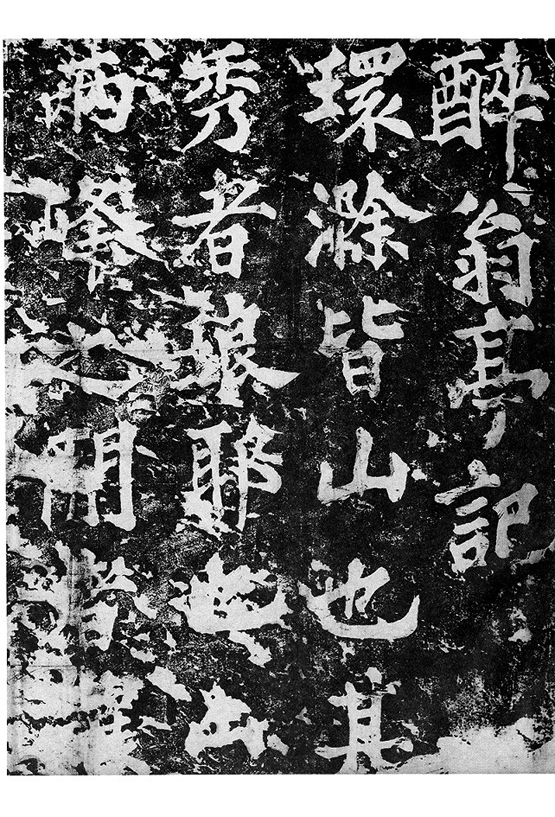 醉翁亭記
環滁皆山也其
秀者琅耶也山
兩峰之間者